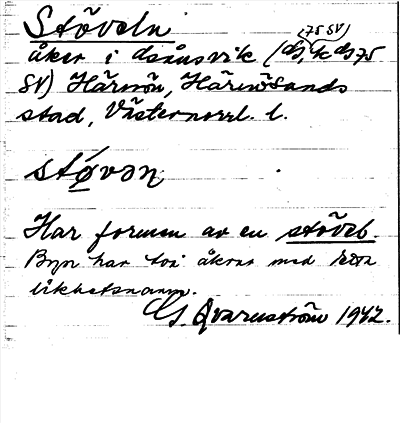 Stöveln
75 SV)
åker i dsåusvik (dj, k dj 75
SV) Härnön, Härnösands
stad, Västernorrl. l.
støvən
Har formen av en stövel.
Byn har två åkrar med
likhetsnamn.
G. Qvarnström 1942.